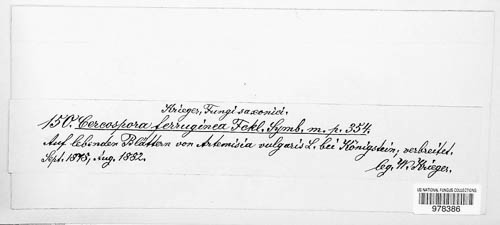 Krieger, Fungi saxonici.
150. Cercospora ferruginea Fckl. Symb. m. p. 354.
Auf lebenden Blättern von Artemisia vulgaris L. bei Königstein, verbreitet.
Sept. Aug. 1882. leg. W. Krieger.
US NATIONAL FUNGUS COLLECTIONS
978386